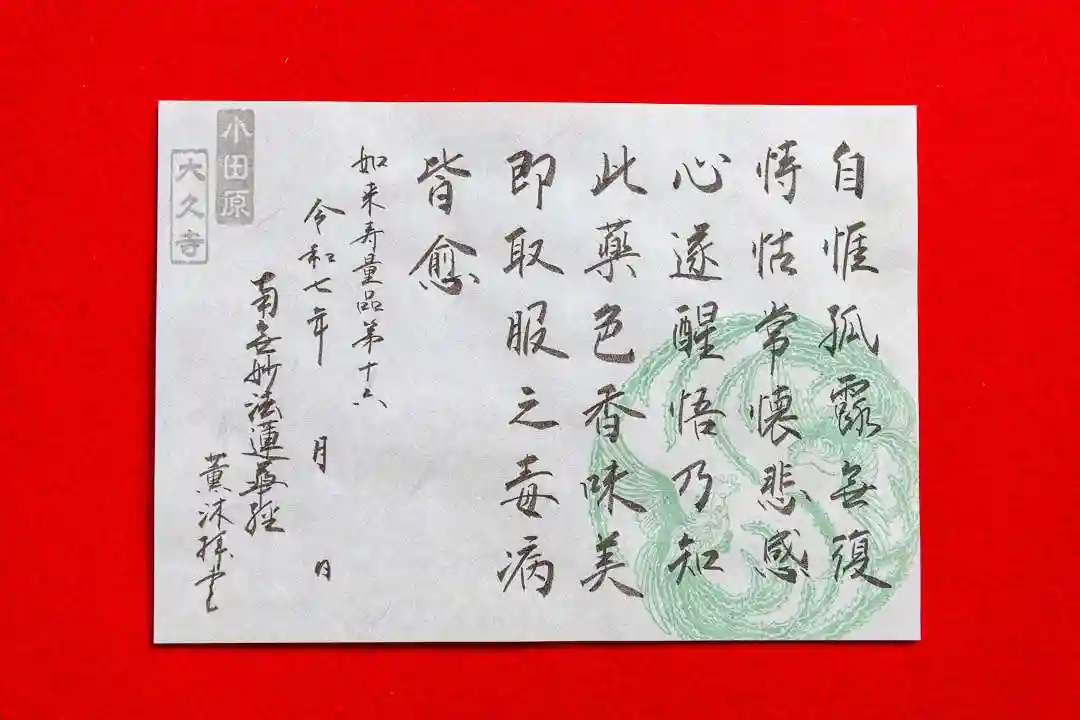 自惟孤露無復
恃怙常懐悲感
心遂醒悟乃知
此薬色香味美
即取服之毒病
皆愈
如来寿量品第十六
令和七年 月 日
南無妙法蓮華経
薫沐拝書
小田原
大久寺